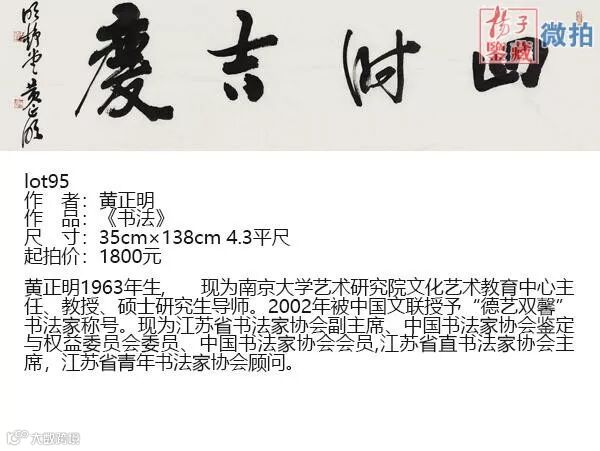 四时吉慶
明静堂黄正明
揚子
鑒藏
微拍
lot95
作 者：黄正明
作 品：《书法》
尺 寸：35cm×138cm 4.3平尺
起拍价：1800元
黄正明1963年生， 现为南京大学艺术研究院文化艺术教育中心主
任、教授、硕士研究生导师。2002年被中国文联授予“德艺双馨”
书法家称号。现为江苏省书法家协会副主席、中国书法家协会鉴定
与权益委员会委员、中国书法家协会会员,江苏省直书法家协会主
席，江苏省青年书法家协会顾问。
大数跨境